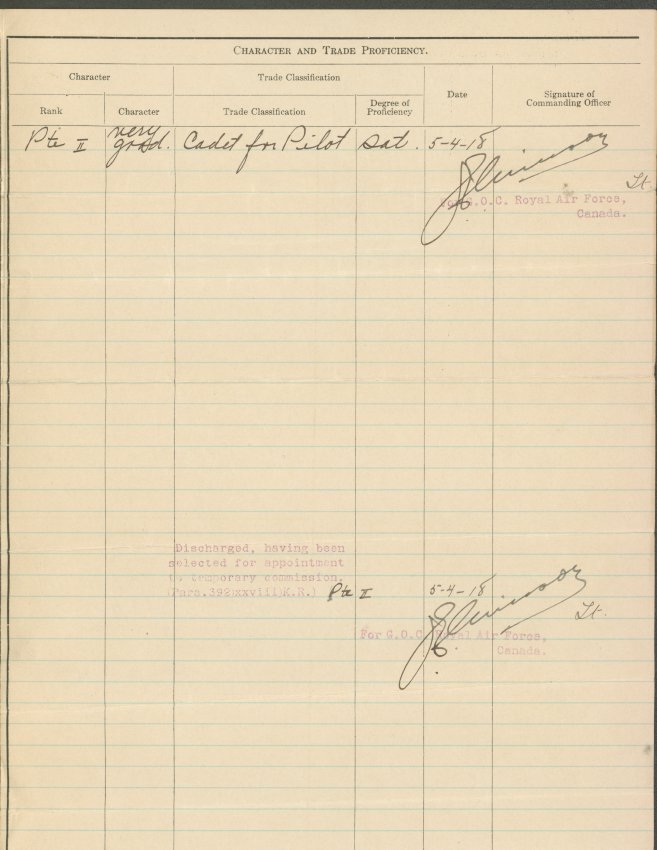 CHARACTER AND TRADE PROFICIENCY.
Character
Trade Classification
Date
Signature of
Commanding Officer
Rank
Character
Trade Classification
Degree of
Proficiency
Pte II very good. Cadet for Pilot Sat. 5-4-18
Lt.
For G.O.C. Royal Air Force,
Canada.
Discharged, having been
selected for appointment
to temporary commission.
(Para.392(xxviii)K.R.) Pte II 5-4-18
Lt.
For G.O.C. Royal Air Force,
Canada.